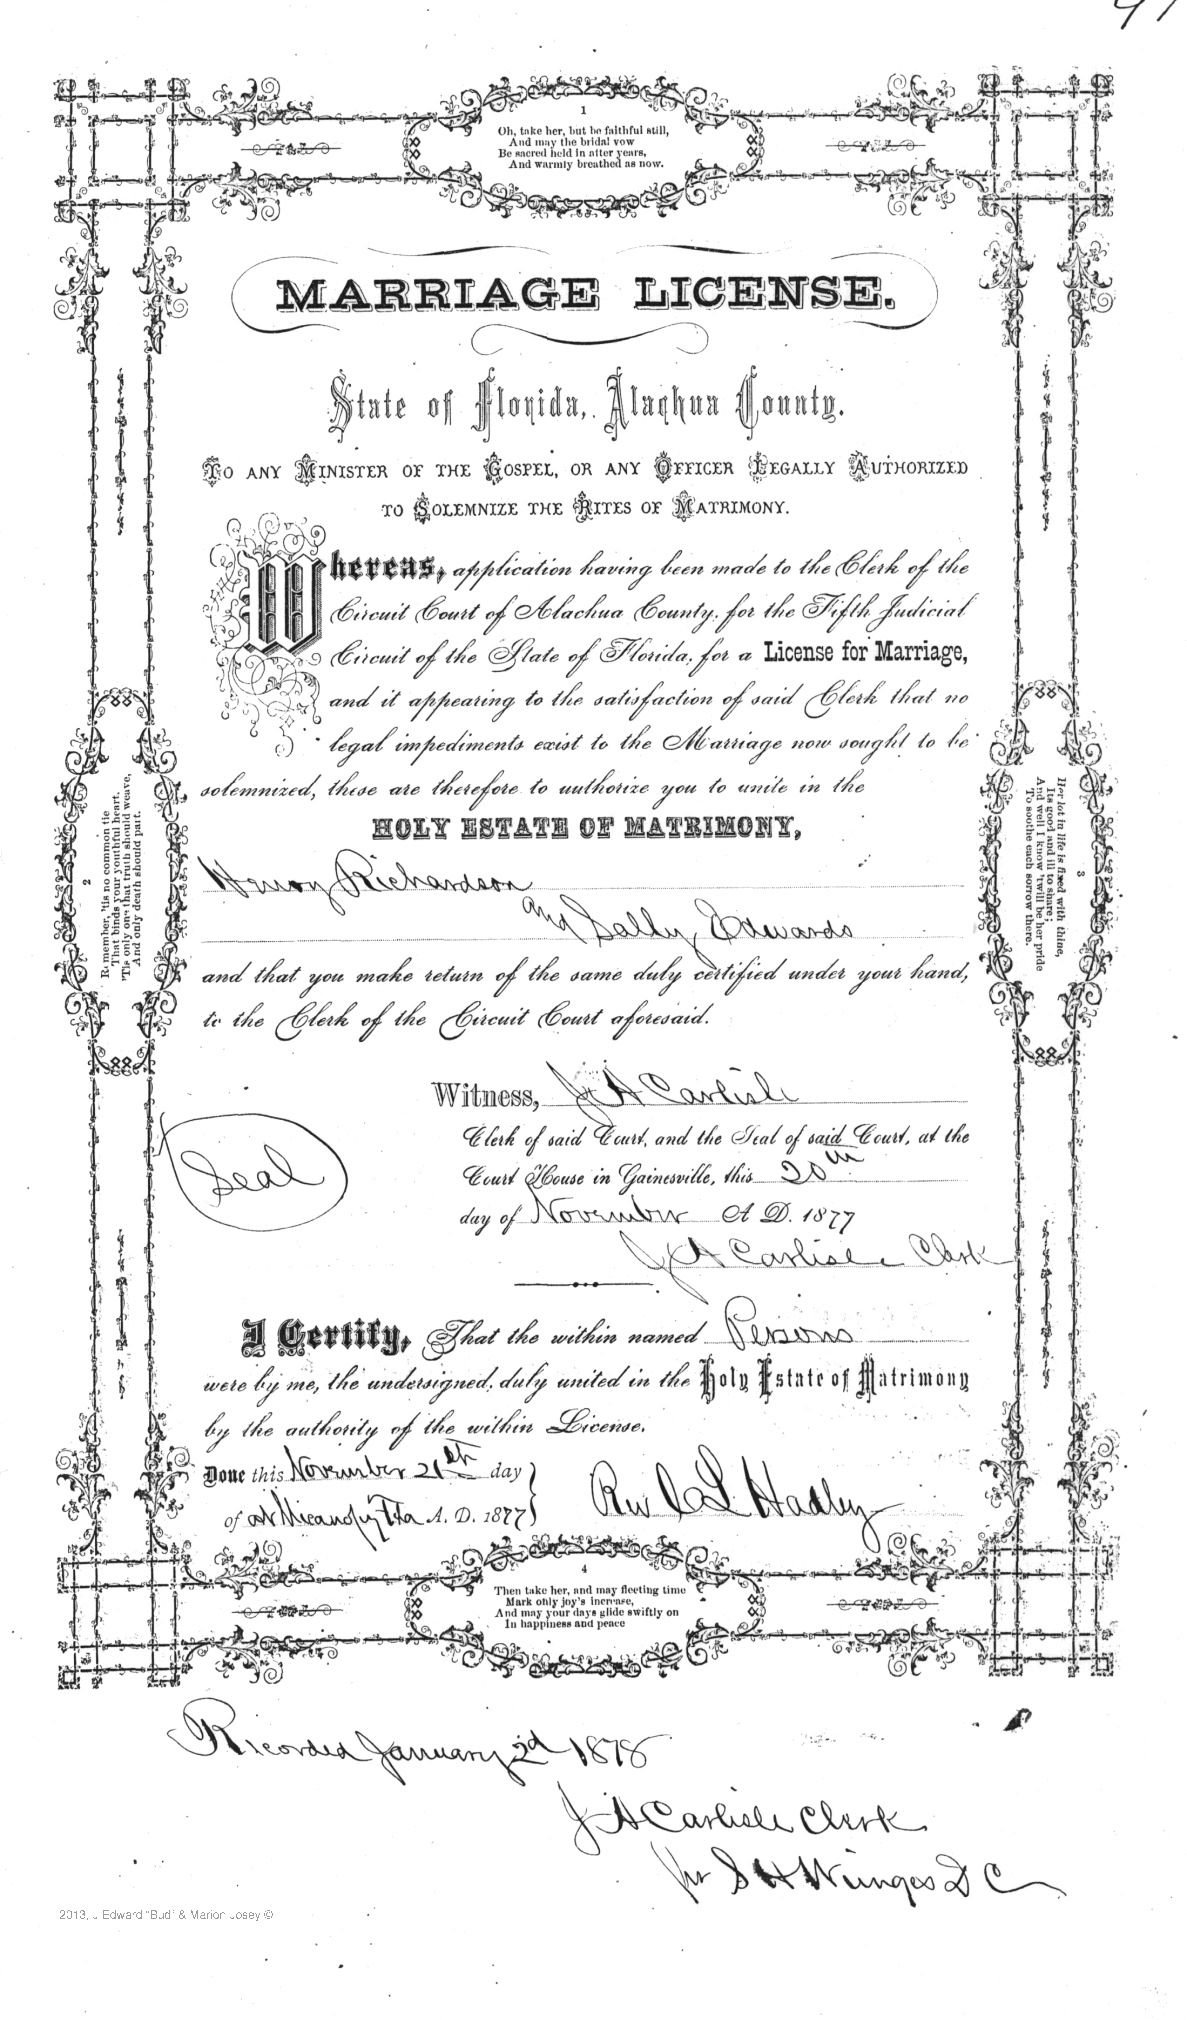 1
Oh, take her, but be faithful still,
And may the bridal vow
Be sacred held in after years,
And warmly breathed as now.
MARRIAGE LICENSE.
State of Florida, Alachua County.
TO ANY MINISTER OF THE GOSPEL, OR ANY OFFICER LEGALLY AUTHORIZED
TO SOLEMNIZE THE RITES OF MATRIMONY.
Whereas, application having been made to the Clerk of the
Circuit Court of Alachua County, for the Fifth Judicial
Circuit of the State of Florida, for a License for Marriage,
and it appearing to the satisfaction of said Clerk that no
legal impediments exist to the Marriage now sought to be
solemnized, these are therefore to authorize you to unite in the
HOLY ESTATE OF MATRIMONY,
Henry Richardson
and Sally Edwards
and that you make return of the same duly certified under your hand,
to the Clerk of the Circuit Court aforesaid.
2
Remember, 'tis no common tie
That binds your youthful heart,
'Tis only one that truth should weave,
And only death should part.
3
Her lot in life is fixed with thine,
Its good and ill to share;
And well I know 'twill be her pride
To soothe each sorrow there.
Witness, J A Carlisle
Clerk of said Court, and the Seal of said Court, at the
Court House in Gainesville, this 20th
day of November A D. 1877
J A Carlisle Clerk
Seal
I Certify, That the within named Persons
were by me, the undersigned, duly united in the Holy Estate of Matrimony
by the authority of the within License.
Done this November 21st day
of at Micanopy Fla A. D. 1877
Rev C L Hadley
4
Then take her, and may fleeting time
Mark only joy's increase,
And may your days glide swiftly on
In happiness and peace
Recorded January 2d 1878
J A Carlisle Clerk
per S H D C
2013, J Edward "Bud" & Marion Josey ©